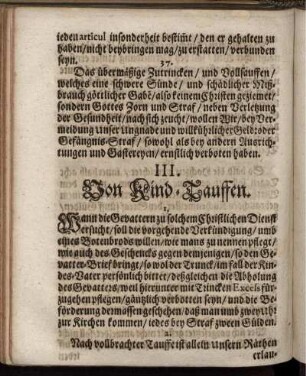 ieden articul insonderheit bestim̃t / den er gehalten zu
haben / nicht beybringen mag / zu erstatten / verbunden
seyn.
37.
Das übermäßige Zutrincken / und Vollsauffen /
welches eine schwere Sünde / und schädlicher Miß-
brauch göttlicher Gabē / also keinem Christen geziemet /
sondern Gottes Zorn und Straf / neben Verletzung
der Gesundheit / nach sich zeucht / wollen Wir / bey Ver-
meidung unser Ungnade und willkührlicher Geld- oder
Gefängnis-Straf / sowohl als bey andern Ausrich-
tungen und Gastereyen / ernstlich verboten haben.
III.
Von Kind-Tauffen.
1.
Wann die Gevattern zu solchem Christlichen Dienst
ersucht / soll die vorgehende Verkündigung / umb
eines Botenbrods willen / wie mans zu nennen pflegt /
wie auch des Geschencks gegen demjenigen / so den Ge-
vatter-Brief bringt / so wol der Trunck / im fall der Kin-
des-Vater persönlich bittet / deßgleichen die Abholung
des Gevatters / weil hierunter mit Trincken Exceß für-
zugehen pflegen / gäntzlich verbotten seyn / und die Be-
förderung dermassen geschehen / daß man umb zwey Uhr
zur Kirchen kommen / iedes bey Straf zween Gülden.
2.
Nach vollbrachter Tauffe ist allein unsern Räthen
erlau-